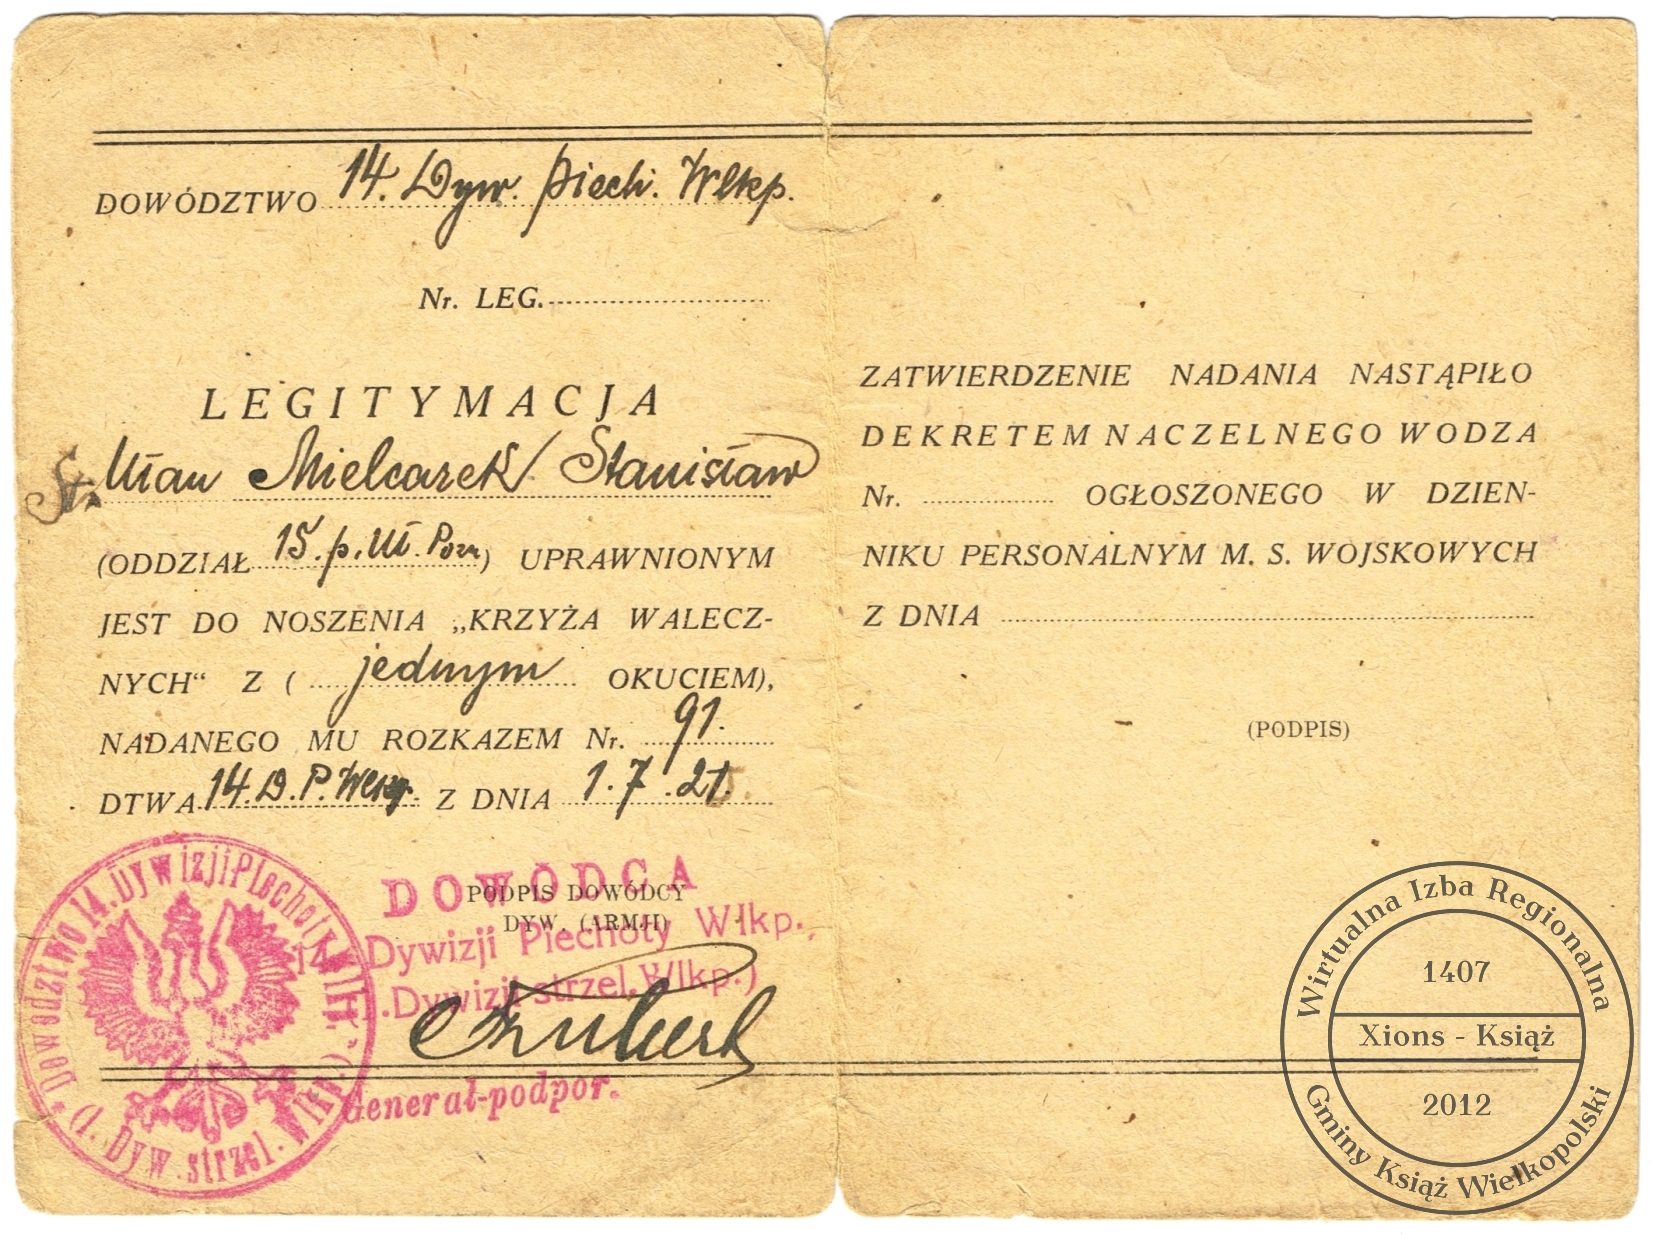 DOWÓDZTWO 14. Dyw. Piech. Wlkp.
Nr. LEG.
LEGITYMACJA
St. Ułan Mielcarek Stanisław
(ODDZIAŁ 15. p. Uł. Pozn) UPRAWNIONYM
JEST DO NOSZENIA „KRZYŻA WALECZ-
NYCH“ Z ( jednym OKUCIEM),
NADANEGO MU ROZKAZEM Nr. 91.
DTWA 14. D. P. Wlkp. Z DNIA 1. 7. 21.
PODPIS DOWÓDCY
DYW. (ARMJI)
DOWÓDCA
14. Dywizji Piechoty Włkp.
(1. Dywizji strzel. Wlkp.)
Generał-podpor.
Dowództwo 14. Dywizji Piechoty Wlkp.
(1. Dyw. strzel. Wlkp.)
ZATWIERDZENIE NADANIA NASTĄPIŁO
DEKRETEM NACZELNEGO WODZA
Nr. OGŁOSZONEGO W DZIEN-
NIKU PERSONALNYM M. S. WOJSKOWYCH
Z DNIA
(PODPIS)
Wirtualna Izba Regionalna
1407
Xions - Książ
2012
Gminy Książ Wielkopolski